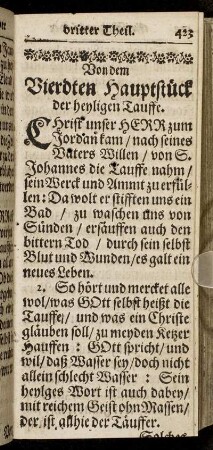 dritter Theil. 423
Von dem
Vierdten Hauptstück
der heyligen Tauffe.
Christ unser HERR zum
Jordan kam / nach seines
Vaters Willen / von S.
Johannes die Tauffe nahm /
sein Werck und Ammt zu erfül-
len: Da wolt er stifften uns ein
Bad / zu waschen uns von
Sünden / ersäuffen auch den
bittern Tod / durch sein selbst
Blut und Wunden / es galt ein
neues Leben.
2. So hört und mercket alle
wol / was GOtt selbst heißt die
Tauffe / und was ein Christe
gläuben soll / zu meyden Ketzer
Hauffen: GOtt spricht / und
wil / daß Wasser sey / doch nicht
allein schlecht Wasser: Sein
heylges Wort ist auch dabey /
mit reichem Geist ohn Massen /
der ist allhie der Täuffer.
Solches